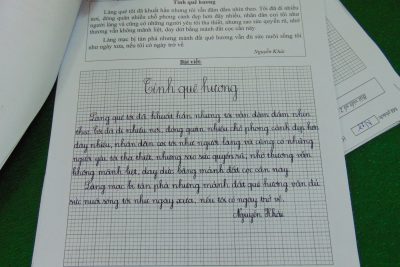 Tình quê hương
Làng quê tôi đã khuất hẳn nhưng tôi vẫn đăm đắm nhìn theo. Tôi đã đi nhiều
nơi, đóng quân nhiều chỗ phong cảnh đẹp hơn đây nhiều, nhân dân coi tôi như
người làng và cũng có những người yêu tôi tha thiết, nhưng sao sức quyến rũ, nhớ
thương vẫn không mãnh liệt, day dứt bằng mảnh đất cọc cằn này.
Làng mạc bị tàn phá nhưng mảnh đất quê hương vẫn đủ sức nuôi sống tôi
như ngày xưa, nếu tôi có ngày trở về.
Nguyễn Khải
Bài viết:
Tình quê hương
Làng quê tôi đã khuất hẳn nhưng tôi vẫn đăm đắm nhìn
theo. Tôi đã đi nhiều nơi, đóng quân nhiều chỗ phong cảnh đẹp hơn
đây nhiều, nhân dân coi tôi như người làng và cũng có những
người yêu tôi tha thiết, nhưng sao sức quyến rũ, nhớ thương vẫn
không mãnh liệt, day dứt bằng mảnh đất cọc cằn này.
Làng mạc bị tàn phá nhưng mảnh đất quê hương vẫn đủ
sức nuôi sống tôi như ngày xưa, nếu tôi có ngày trở về.
Nguyễn Khải